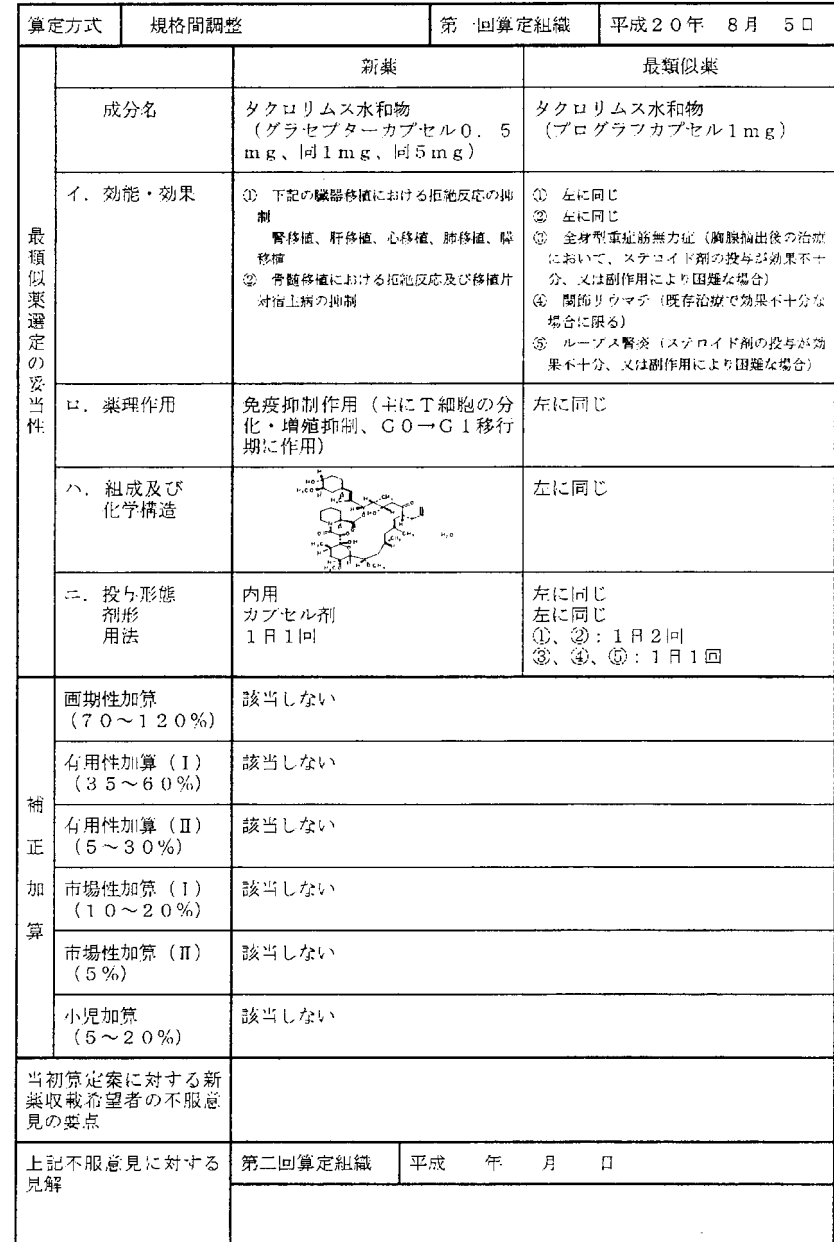 算定方式 規格間調整 第一回算定組織 平成20年 8月 5日
新薬 最類似薬
最類似薬選定の妥当性
成分名
タクロリムス水和物
(グラセプターカプセル0.5
mg、同1mg、同5mg)
タクロリムス水和物
(プログラフカプセル1mg)
イ.効能・効果
① 下記の臓器移植における拒絶反応の抑
制
腎移植、肝移植、心移植、肺移植、膵
移植
② 骨髄移植における拒絶反応及び移植片
対宿主病の抑制
① 左に同じ
② 左に同じ
③ 全身型重症筋無力症(胸腺摘出後の治療
において、ステロイド剤の投与が効果不十
分、又は副作用により困難な場合)
④ 関節リウマチ(既存治療で効果不十分な
場合に限る)
⑤ ループス腎炎(ステロイド剤の投与が効
果不十分、又は副作用により困難な場合)
ロ.薬理作用
免疫抑制作用(主にT細胞の分
化・増殖抑制、G0→G1移行
期に作用)
左に同じ
ハ.組成及び
化学構造
左に同じ
ニ.投与形態
剤形
用法
内用
カプセル剤
1日1回
左に同じ
左に同じ
①、②:1日2回
③、④、⑤:1日1回
補正加算
画期性加算
(70~120%)
該当しない
有用性加算(Ⅰ)
(35~60%)
該当しない
有用性加算(Ⅱ)
(5~30%)
該当しない
市場性加算(Ⅰ)
(10~20%)
該当しない
市場性加算(Ⅱ)
(5%)
該当しない
小児加算
(5~20%)
該当しない
当初算定案に対する新
薬収載希望者の不服意
見の要点
上記不服意見に対する
見解
第二回算定組織 平成 年 月 日